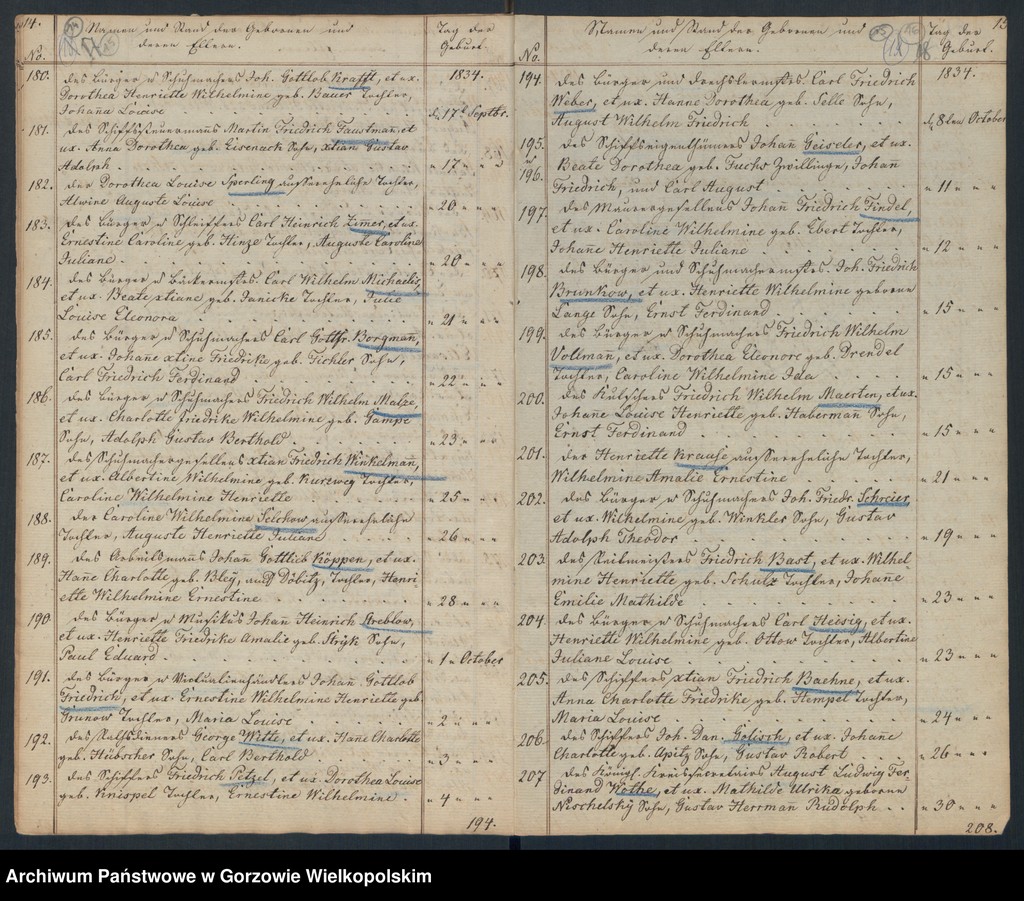 14.
Namen und Stand der Geborenen und
deren Eltern.
Tag der
Geburt.
No.
180. des Bürger u Schuhmachers Joh. Gottlob Krafft, et ux. 1834.
Dorothea Henriette Wilhelmine geb. Bauer Tochter,
Johaña Louise d. 17t Septbr.
181. des Schiffssteuermanns Martin Friedrich Faustmañ, et
ux. Anna Dorothea geb. Eisenack Sohn, xtian Gustav
Adolph " 17 " " "
182. der Dorothea Louise Sperling außereheliche Tochter,
Alwine Auguste Louise " 20 " " "
183. des Bürger u Schleiffers Carl Heinrich Zimer, et ux.
Ernestine Caroline geb. Hinze Tochter, Auguste Caroline
Juliane " 20 " " "
184. des Bürger u Bäckermstrs. Carl Wilhelm Michaelis,
et ux. Beate xtiane geb. Janicke Tochter, Julie
Louise Eleonora " 21 " " "
185. des Bürger u Schuhmachers Carl Gottfr. Borgmañ,
et ux. Johañe xtine Friedrike geb. Fichler Sohn,
Carl Friedrich Ferdinand " 22 " " "
186. des Bürger u Schuhmachers Friedrich Wilhelm Matze,
et ux. Charlotte Friedrike Wilhelmine geb. Gampe
Sohn, Adolph Gustav Berthold " 23 " " "
187. des Schuhmachergesellens xtian Friedrich Winkelmañ,
et ux. Albertine Wilhelmine geb. Kurzweg Tochter,
Caroline Wilhelmine Henriette " 25 " " "
188. der Caroline Wilhelmine Selchow außereheliche
Tochter, Auguste Henriette Juliane " 26 " " "
189. des Arbeitsmanns Johañ Gottlieb Köppen, et ux.
Hañe Charlotte geb. Bleÿ, aus Döbitz, Tochter, Henri
ette Wilhelmine Ernestine " 28 " " "
190. des Bürger u Musikus Johañ Heinrich Streblow,
et ux. Henriette Friedrike Amalie geb. Stryk Sohn,
Paul Eduard " 1 " October
191. des Bürger u Victualienhändlers Johañ Gottlob
Friedrich, et ux. Ernestine Wilhelmine Henriette geb.
Grunow Tochter, Maria Louise " 2 " " "
192. des Rathsdieners George Witte, et ux. Hañe Charlotte
geb. Hübscher Sohn, Carl Berthold " 3 " " "
193. des Schiffers Friedrich Petzel, et ux. Dorothea Louise
geb. Knispel Tochter, Ernestine Wilhelmine " 4 " " "
194.
Namen und Stand der Geborenen und
deren Eltern.
Tag der
Geburt.
No.
194. des Bürger und Drechslermstrs. Carl Friedrich 1834.
Weber, et ux. Hanne Dorothea geb. Selle Sohn,
August Wilhelm Friedrich d. 8ten October
195. des Schiffseigenthümers Johañ Geiseler, et ux.
u
196. Beate Dorothea geb. Fuchs Zwillinge, Johañ
Friedrich, und Carl August " 11 " " "
197. des Maurergesellens Johañ Friedrich Findel,
et ux. Caroline Wilhelmine geb. Ebert Tochter,
Johañe Henriette Juliane " 12 " " "
198. des Bürger und Schuhmachermstrs. Joh. Friedrich
Brunkow, et ux. Henriette Wilhelmine geborene
Lange Sohn, Ernst Ferdinand " 15 " " "
199. des Bürger u Schuhmachers Friedrich Wilhelm
Vollmañ, et ux. Dorothea Eleonore geb. Drendel
Tochter, Caroline Wilhelmine Ida " 15 " " "
200. des Kutschers Friedrich Wilhelm Maerten, et ux.
Johañe Louise Henriette geb. Haberman Sohn,
Ernst Ferdinand " 15 " " "
201. der Henriette Krause außereheliche Tochter,
Wilhelmine Amalie Ernestine " 21 " " "
202. des Bürger u Schuhmachers Joh. Friedr. Schreier,
et ux. Wilhelmine geb. Winkler Sohn, Gustav
Adolph Theodor " 19 " " "
203. des Friedrich Bast, et ux. Wilhel-
mine Henriette geb. Schulz Tochter, Johañe
Emilie Mathilde " 23 " " "
204. des Bürger u Schuhmachers Carl Heisig, et ux.
Henriette Wilhelmine geb. Ottow Tochter, Albertine
Juliane Louise " 23 " " "
205. des Schiffers xtian Friedrich Baehne, et ux.
Anna Charlotte Friedrike geb. Hempel Tochter,
Maria Louise " 24 " " "
206. des Schiffers Joh. Dan. Golisch, et ux. Johañe
Charlotte geb. Apitz Sohn, Gustav Robert " 26 " " "
207 des Königl. Kreissecretairs August Ludwig Fer-
dinand Wothe, et ux. Mathilde Ulrika geborene
Nischelskÿ Sohn, Gustav Herrmañ Rudolph " 30 " " "
208.
Archiwum Państwowe w Gorzowie Wielkopolskim